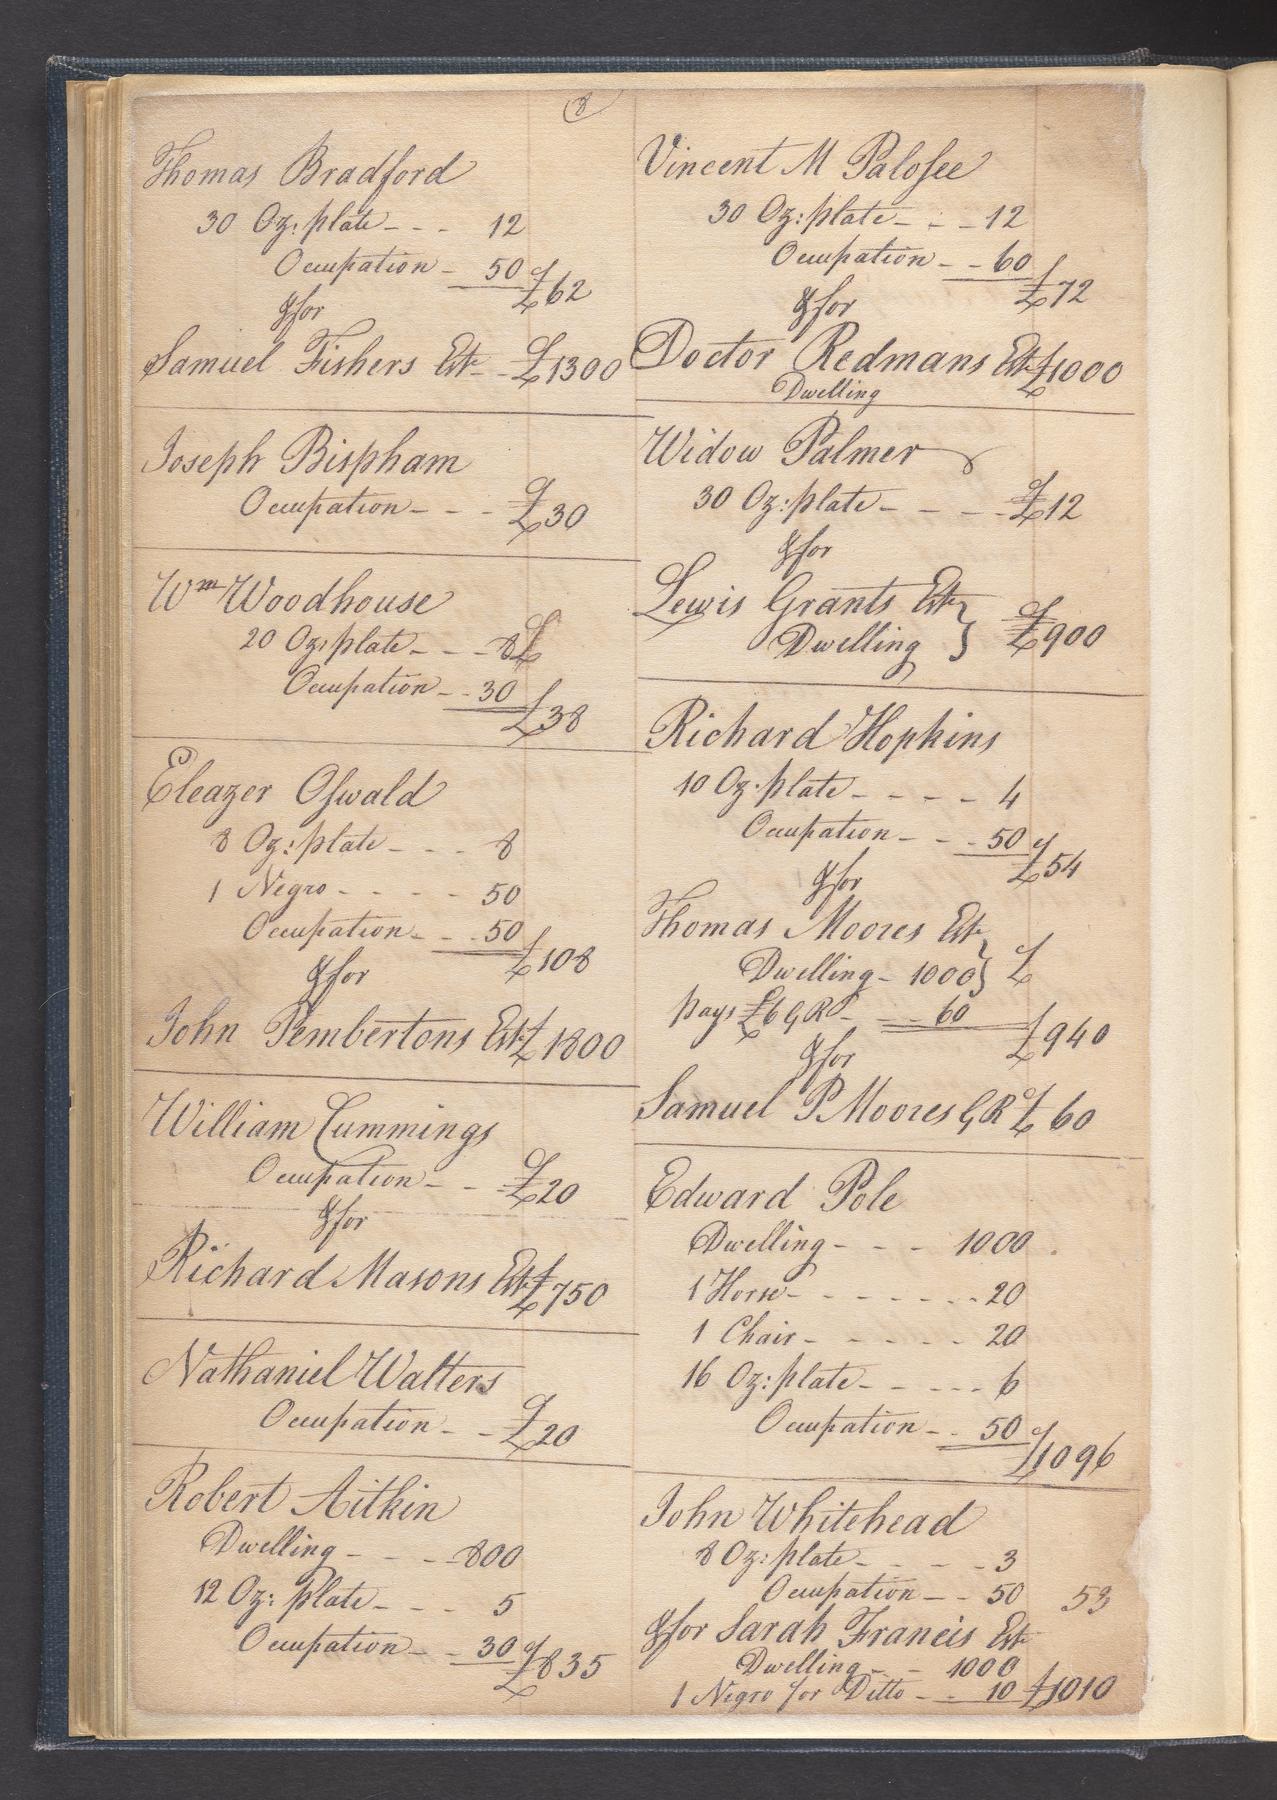 8
Thomas Bradford
30 Oz: plate - - - 12
Occupation - 50
£62
& for
Samuel Fishers Est - - £1300
Joseph Bispham
Occupation - - - £30
Wm Woodhouse
20 Oz: plate - - - 8 £
Occupation - - 30
£38
Eleazer Oswald
8 Oz: plate - - - 8
1 Negro - - - - 50
Occupation - - - 50
£108
& for
John Pembertons Est £1800
William Cummings
Occupation - - - £20
& for
Richard Masons Est £750
Nathaniel Walters
Occupation - - £20
Robert Aitkin
Dwelling - - - 800
12 Oz: plate - - - 5
Occupation - - 30
£835
Vincent M Palosee
30 Oz: plate - - - 12
Occupation - - 60
£72
& for
Doctor Redmans Est £1000
Dwelling
Widow Palmer
30 Oz: plate - - - - £12
& for
Lewis Grants Est }
Dwelling } £900
Richard Hopkins
10 Oz: plate - - - - 4
Occupation - - - 50
£54
& for
Thomas Moores Est }
Dwelling - 1000 } £
pays £6 G Rt - - - 60
£940
& for
Samuel P Moores G Rt £60
Edward Pole
Dwelling - - - 1000
1 Horse - - - - - - - 20
1 Chair - - - - - 20
16 Oz: plate - - - - - 6
Occupation - - 50
£1096
John Whitehead
8 Oz: plate - - - - 3
Occupation - - 50 53
& for Sarah Francis Est
Dwelling - - 1000
1 Negro for Ditto - - 10 £1010